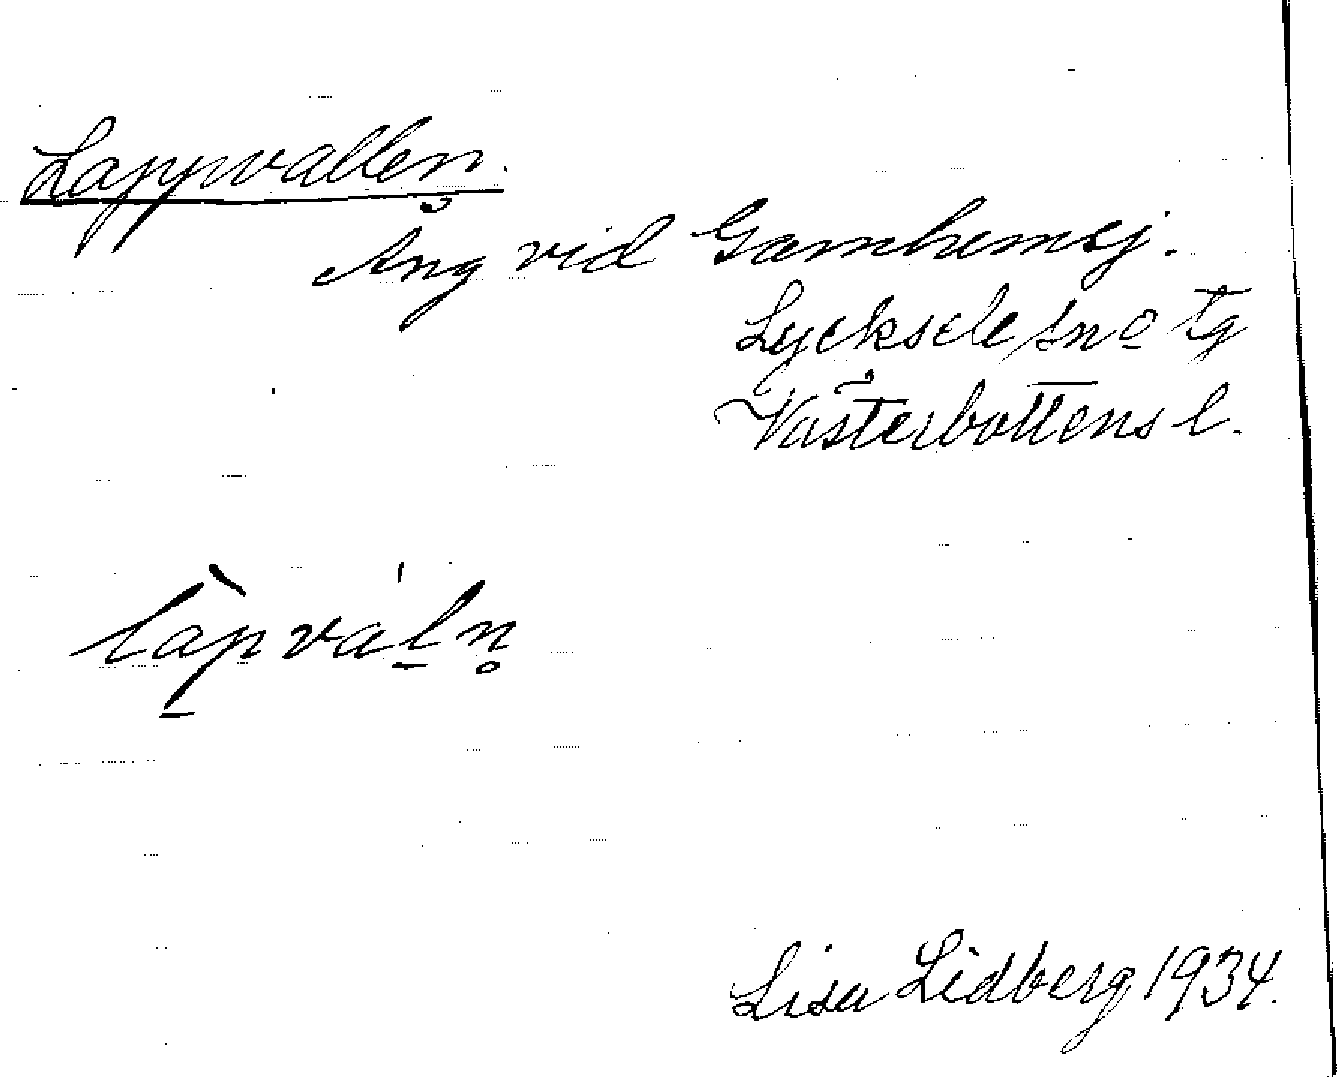 Lappvallen.
Äng vid Gamhemsj.
Lycksele sn o tg
Västerbottens l.
làp̱váḻn̥
Lisa Lidberg 1934.